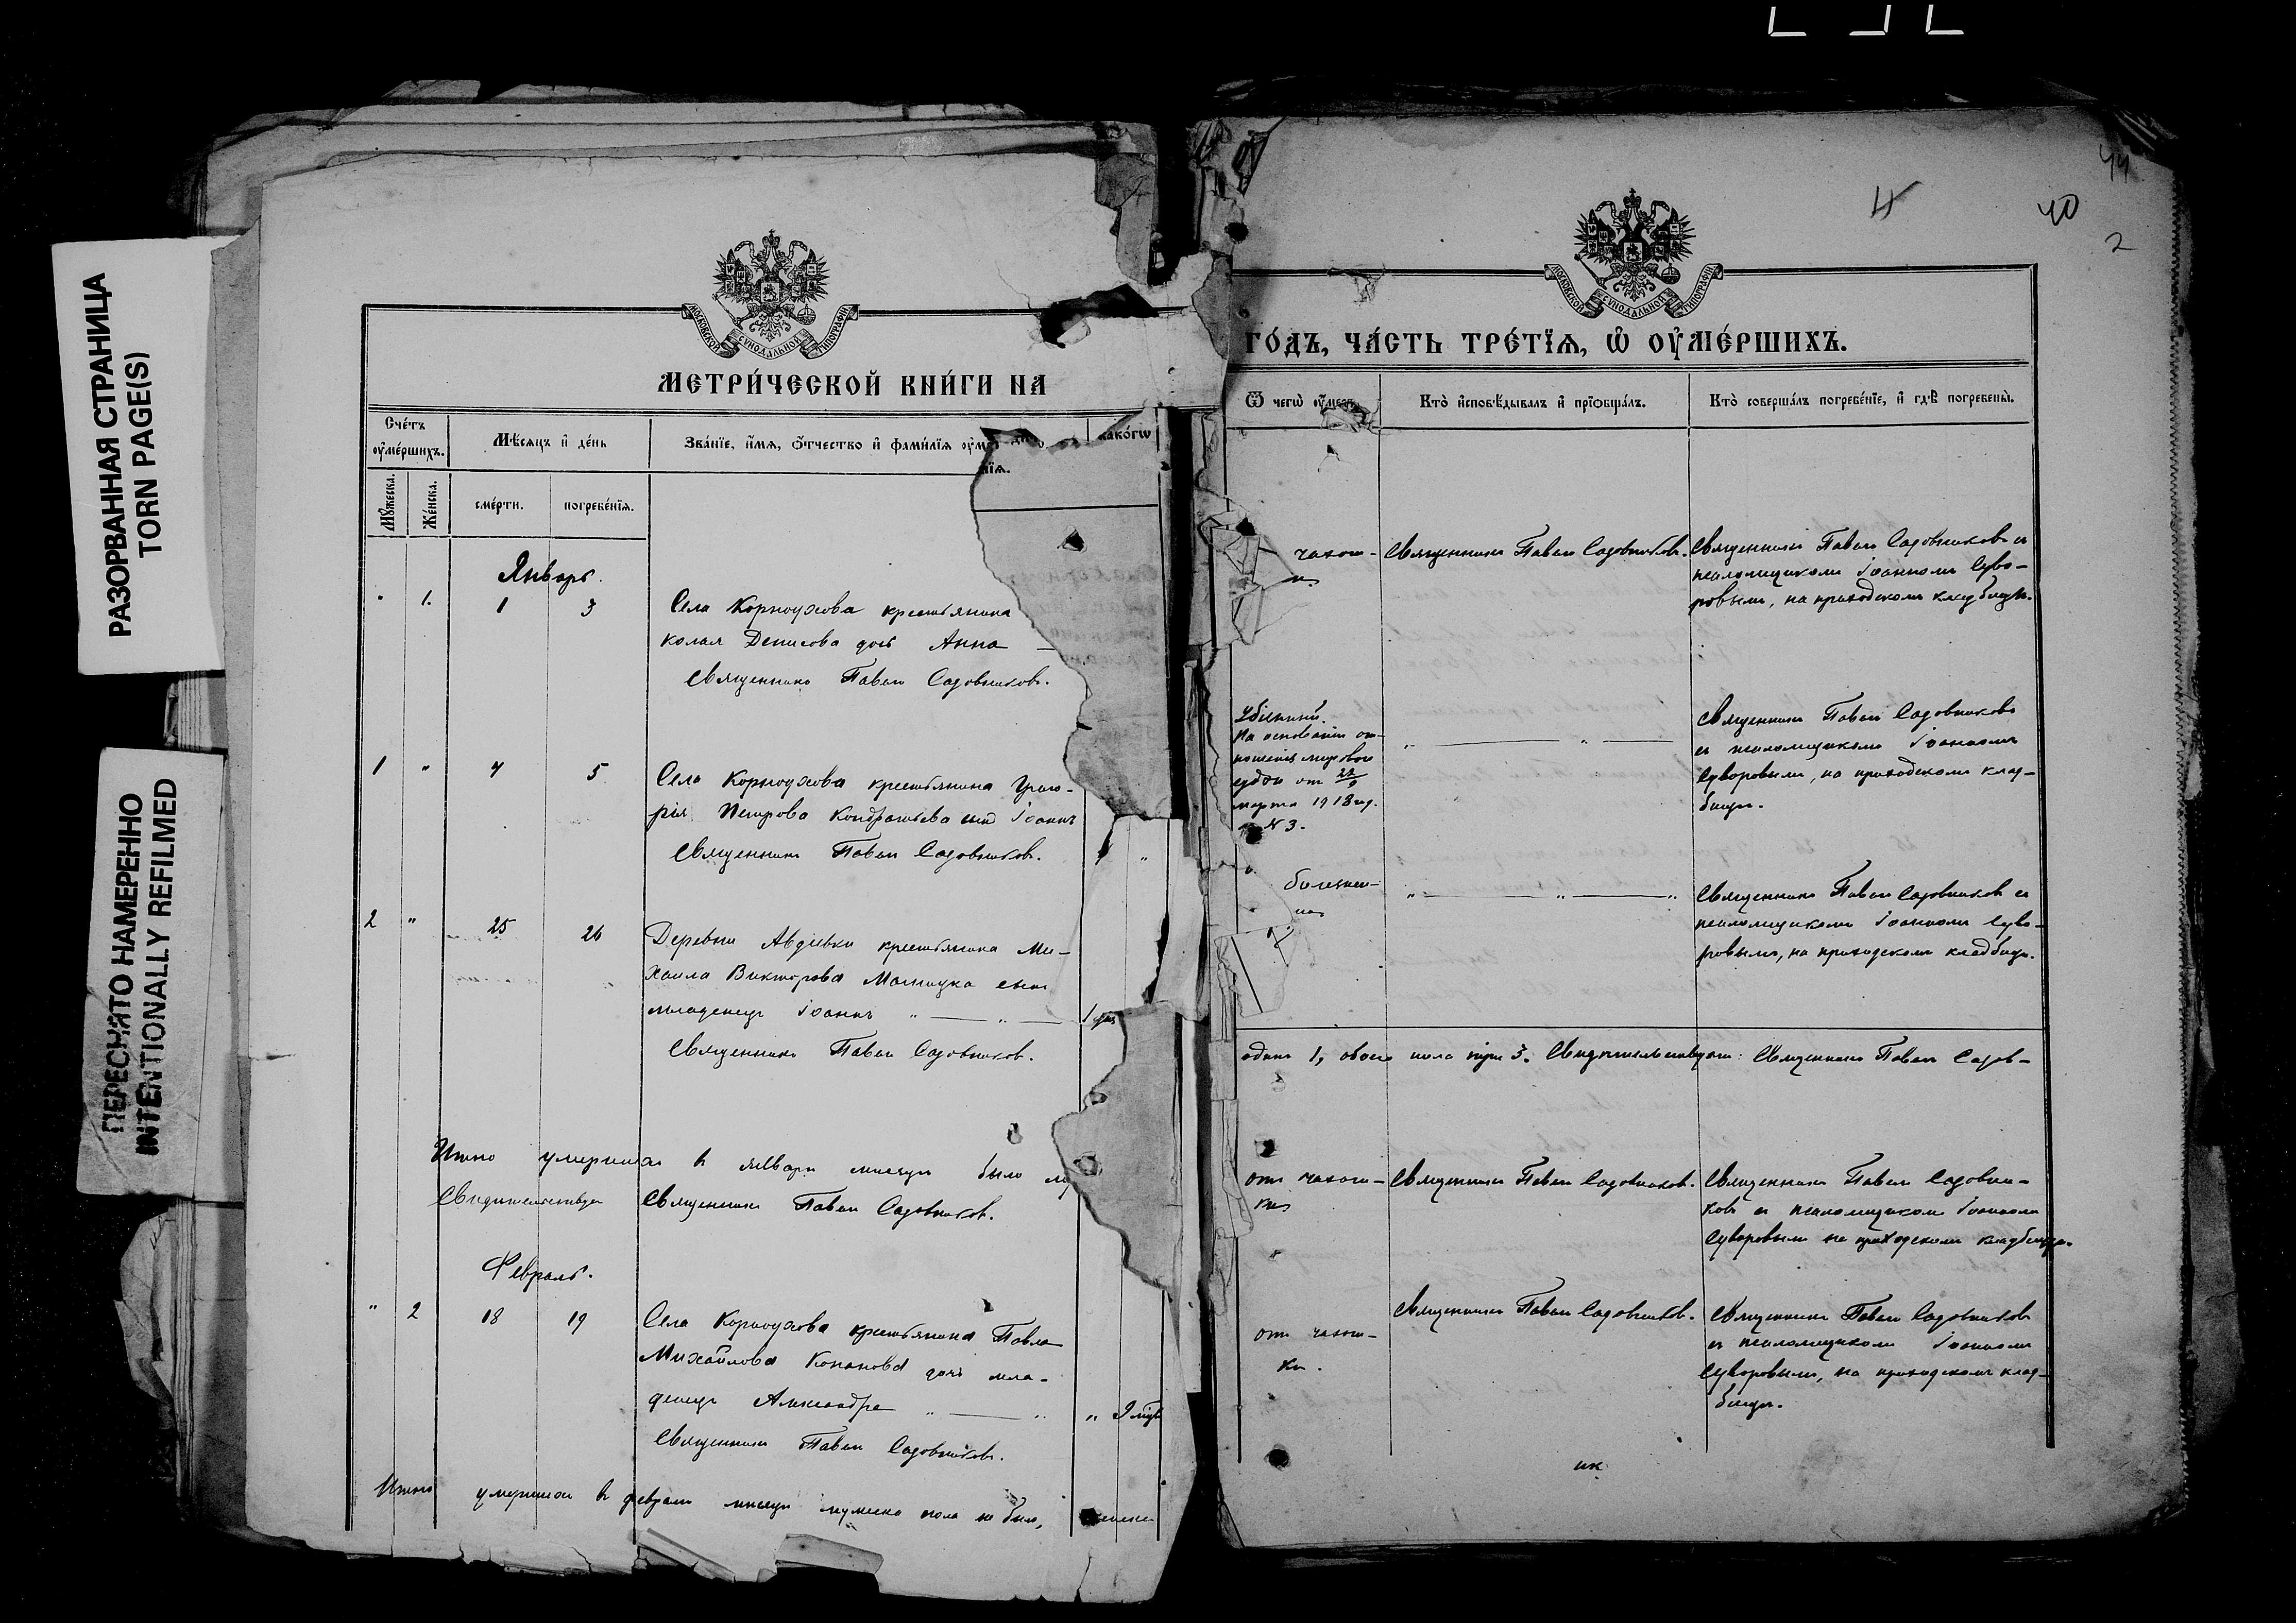 РАЗОРВАННАЯ СТРАНИЦА
TORN PAGE(S)
ПЕРЕСНЯТО НАМЕРЕННО
INTENTIONALLY REFILMED
МОСКОВСКОЙ СѴНОДАЛЬНОЙ ТИПОГРАФІИ
МЕТРИ́ЧЕСКОЙ КНИ́ГИ НА
Сче́тъ
оу҆ме́ршихъ.
Мѣ́сяцъ и҆ де́нь
Зва́нїе, и҆́мѧ, ѻ҆́тчество и҆ фами́лїѧ
како́гѡ
Мꙋ́жеска.
Же́нска.
сме́рти.
погребе́нїѧ.
Январь.
1. 1 3
Села Корноухова крестьянина
колая Денисова дочь Анна
Священникъ Павелъ Садовниковъ.
1 " 4 5
Села Корноухова крестьянина Григо-
рія Петрова Кондратьева сынъ Іоаннъ
Священникъ Павелъ Садовниковъ.
2 " 25 26
Деревни Авдѣевки крестьянина Ми-
хаила Викторова сынъ
младенецъ Іоаннъ " — " —
Священникъ Павелъ Садовниковъ.
Итого умершихъ въ январѣ мѣсяцѣ было
Свидѣтельствуетъ Священникъ Павелъ Садовниковъ.
Февраль.
" 2 18 19
Села Корноухова крестьянина Павла
Михайлова Конанова дочь мла-
денецъ Александра " — " " 9 мѣс
Священникъ Павелъ Садовниковъ.
Итого умершихъ въ февралѣ мѣсяцѣ мужеска пола не было, женска
44
4 40
2
МОСКОВСКОЙ СѴНОДАЛЬНОЙ ТИПОГРАФІИ
ГО́ДЪ, ЧА́СТЬ ТРЕ́ТЇѦ, Ѡ҆ ОУ҆МЕ́РШИХЪ.
Ѿ чегѡ̀ оу҆́меръ.
Кто̀ и҆сповѣ́дывалъ и҆ прїѡбща́лъ.
Кто̀ соверша́лъ погребе́нїе, и҆ гдѣ̀ погребены̀.
чахот- Священникъ Павелъ Садовниковъ. Священникъ Павелъ Садовниковъ съ
псаломщикомъ Іоанномъ Суво-
ровымъ, на приходскомъ кладбищѣ.
На основаніи от-
ношенія мирового
судьи от 22/9
марта 1918 год.
N 3.
" — " —
Священникъ Павелъ Садовниковъ
съ псаломщикомъ Іоанномъ
Суворовымъ, на приходскомъ клад-
бищѣ.
болѣзнен-
" — " — "
Священникъ Павелъ Садовниковъ съ
псаломщикомъ Іоанномъ Суво-
ровымъ, на приходскомъ кладбищѣ.
одинъ 1, обоего пола три 3. Свидѣтельствуетъ: Священникъ Павелъ Садов-
отъ чахот- Священникъ Павелъ Садовниковъ. Священникъ Павелъ Садовни-
ки
ковъ съ псаломщикомъ Іоанномъ
Суворовымъ на приходскомъ кладбищѣ.
Священникъ Павелъ Садовниковъ. Священникъ Павелъ Садовниковъ
отъ чахот-
ки.
съ псаломщикомъ Іоанномъ
Суворовымъ, на приходскомъ клад-
бищѣ.